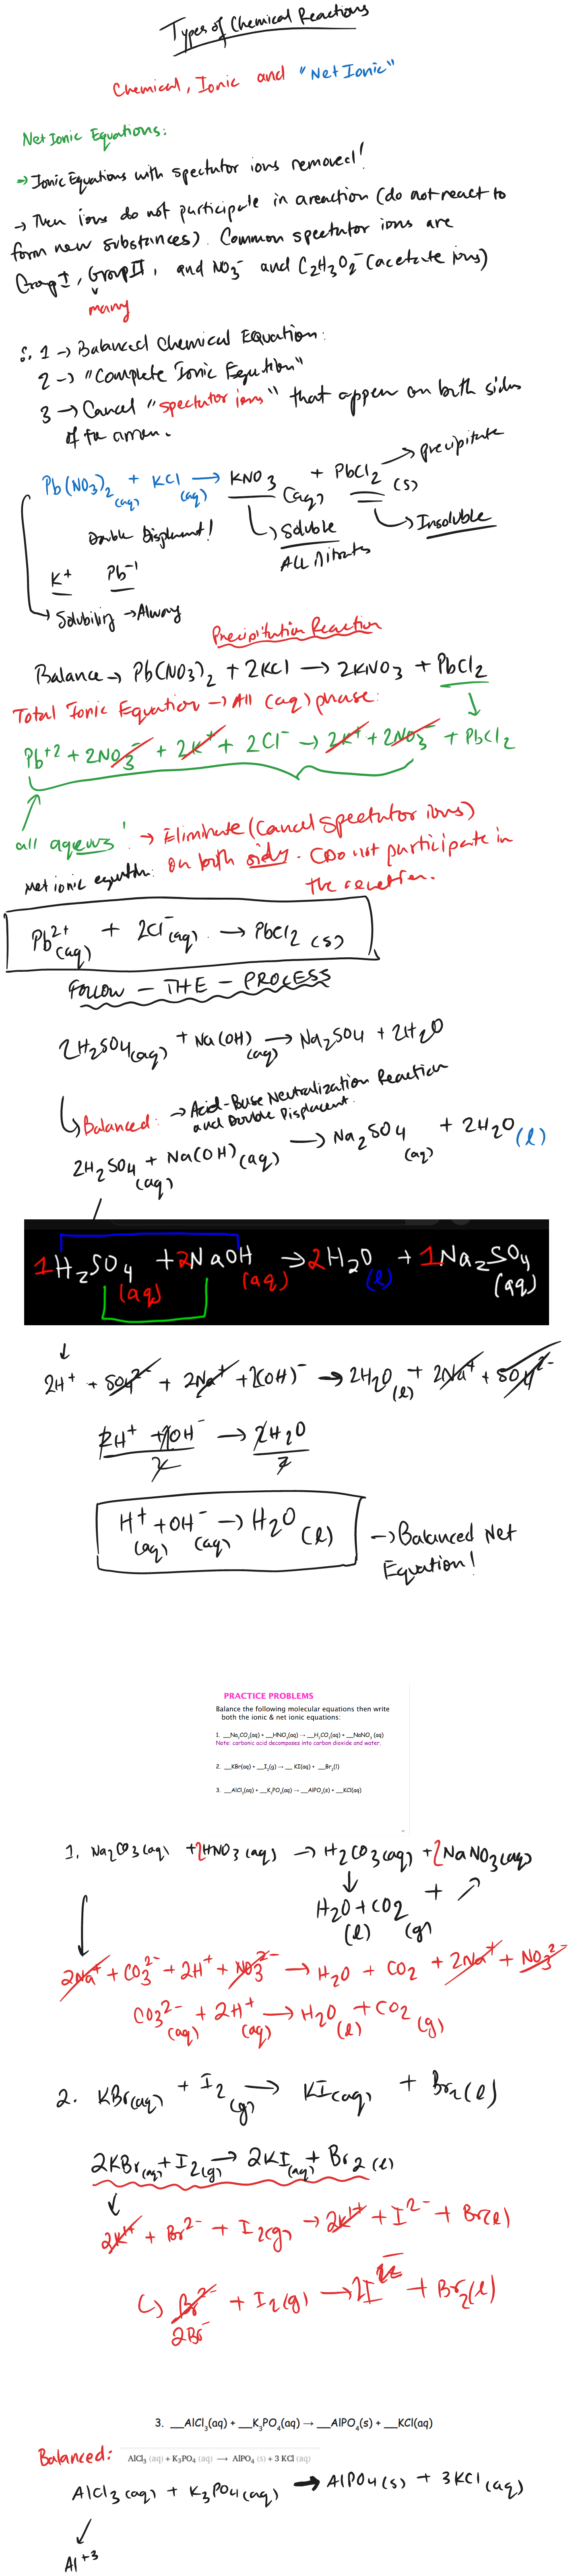 Types of Chemical Reactions
Chemical, Ionic and "Net Ionic"
Net Ionic Equations:
→ Ionic Equations with spectator ions removed!
→ Then ions do not participate in a reaction (do not react to
form new substances). Common spectator ions are
Group I, Group II, and NO₃⁻ and C₂H₃O₂⁻ (acetate ions)
many
∴ 1 → Balanced Chemical Equation:
2 → "Complete Ionic Equation"
3 → Cancel "spectator ions" that appear on both sides
of the arrow.
Pb(NO₃)₂ (aq) + KCl (aq) → KNO₃ (aq) + PbCl₂ (s) → precipitate
Double Displacement!
↳ Soluble
↳ Insoluble
All Nitrates
K⁺ Pb⁻¹
→ Solubility → Always
Precipitation Reaction
Balance → Pb(NO₃)₂ + 2KCl → 2KNO₃ + PbCl₂
Total Ionic Equation → All (aq) phase:
Pb⁺² + 2NO₃⁻ + 2K⁺ + 2Cl⁻ → 2K⁺ + 2NO₃⁻ + PbCl₂
all aqueous! → Eliminate (Cancel spectator ions)
on both sides. (Do not participate in
the reaction.
Net ionic equation:
Pb²⁺(aq) + 2Cl⁻(aq) → PbCl₂ (s)
FOLLOW - THE - PROCESS
2H₂SO₄(aq) + Na(OH)(aq) → Na₂SO₄ + 2H₂O
↳ Balanced: → Acid-Base Neutralization Reaction
and Double Displacent.
2H₂SO₄(aq) + Na(OH)(aq) → Na₂SO₄(aq) + 2H₂O(l)
1H₂SO₄(aq) + 2NaOH(aq) → 2H₂O(l) + 1Na₂SO₄(aq)
2H⁺ + SO₄²⁻ + 2Na⁺ + 2(OH)⁻ → 2H₂O(l) + 2Na⁺ + SO₄²⁻
2H⁺ + 2OH⁻ → 2H₂O
2 2
H⁺(aq) + OH⁻(aq) → H₂O(l) → Balanced Net
Equation!
PRACTICE PROBLEMS
Balance the following molecular equations then write
both the ionic & net ionic equations:
1. __Na₂CO₃(aq) + __HNO₃(aq) → __H₂CO₃(aq) + __NaNO₃ (aq)
Note: carbonic acid decomposes into carbon dioxide and water.
2. __KBr(aq) + __I₂(g) → __ KI(aq) + __Br₂(l)
3. __AlCl₃(aq) + __K₃PO₄(aq) → __AlPO₄(s) + __KCl(aq)
1. Na₂CO₃(aq) + 2HNO₃(aq) → H₂CO₃(aq) + 2NaNO₃(aq)
H₂O(l) + CO₂(g) +
2Na⁺ + CO₃²⁻ + 2H⁺ + NO₃²⁻ → H₂O + CO₂ + 2Na⁺ + NO₃²⁻
CO₃²⁻(aq) + 2H⁺(aq) → H₂O(l) + CO₂(g)
2. KBr(aq) + I₂(g) → KI(aq) + Br₂(l)
2KBr(aq) + I₂(g) → 2KI(aq) + Br₂(l)
2K¹⁺ + Br²⁻ + I₂(g) → 2K¹⁺ + I²⁻ + Br(l)
↳ Br²⁻ + I₂(g) → 2I⁻ + Br₂(l)
2Br⁻
3. __AlCl₃(aq) + __K₃PO₄(aq) → __AlPO₄(s) + __KCl(aq)
Balanced: AlCl₃ (aq) + K₃PO₄ (aq) → AlPO₄ (s) + 3 KCl (aq)
AlCl₃(aq) + K₃PO₄(aq) → AlPO₄(s) + 3KCl(aq)
Al⁺³